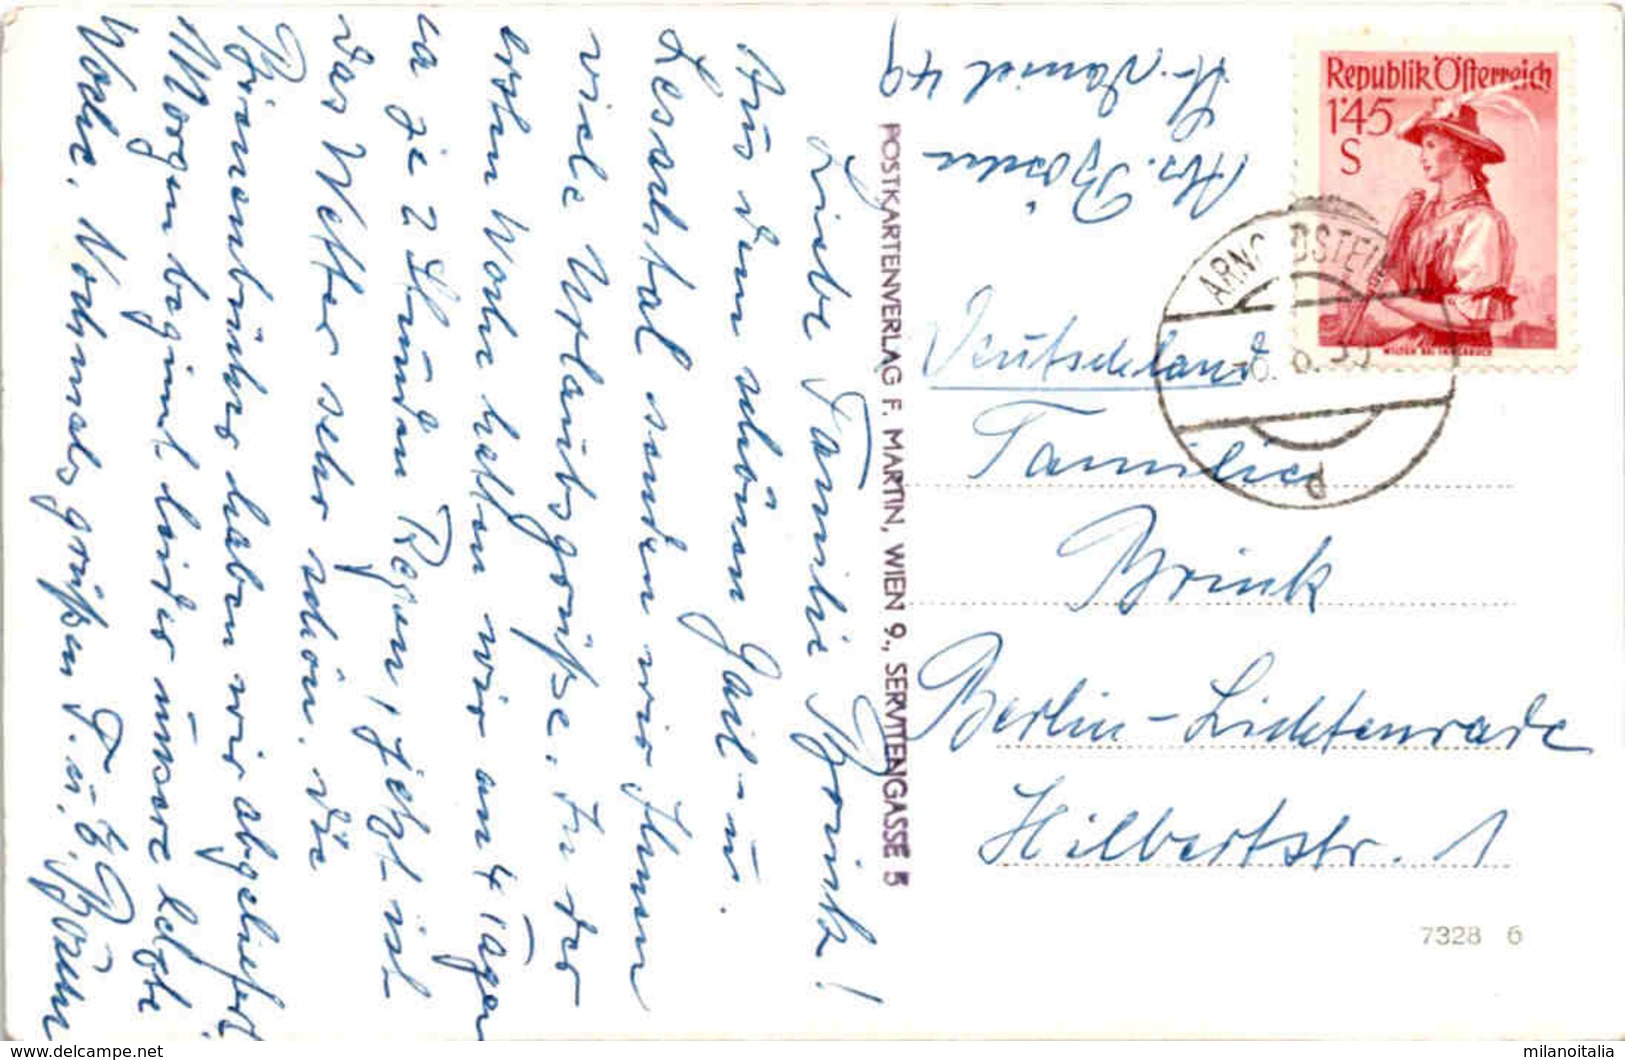 Liebe Familie Brink!
Aus dem schönen Gail- u.
Lesachtal senden wir Ihnen
viele Urlaubsgrüße. In der
ersten Woche hatten wir an 4 Tagen
ca je 2 Stunden Regen, jetzt ist
das Wetter sehr schön. Die
Birnenbrücke haben wir abgeliefert
Morgen beginnt leider unsere letzte
Woche. Nochmals grüßen F. u.
Abs.
St. Daniel 49
POSTKARTENVERLAG F. MARTIN, WIEN 9., SERVITENGASSE 5
Republik Österreich
1'45
S
WILTEN BEI INNSBRUCK
ARNOLDSTEIN
Deutschland
Familie
Brink
Berlin-Lichtenrade
Hilbertstr. 1
7328 6
www.delcampe.net
milanoitalia